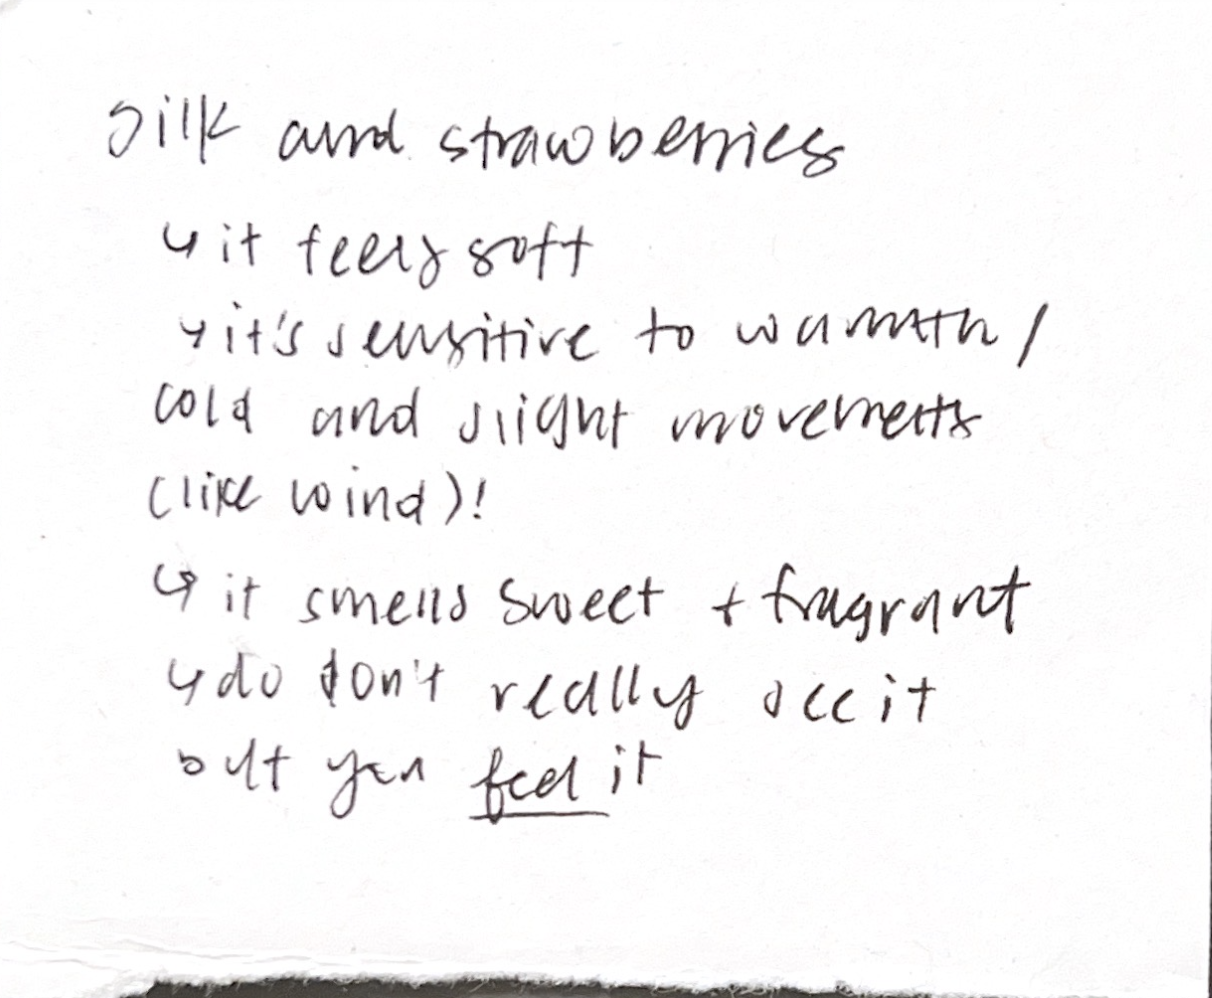 silk and strawberries
↳ it feels soft
↳ it's sensitive to warmth /
cold and slight movements
(like wind)!
↳ it smells sweet + fragrant
↳ do don't really see it
but you feel it